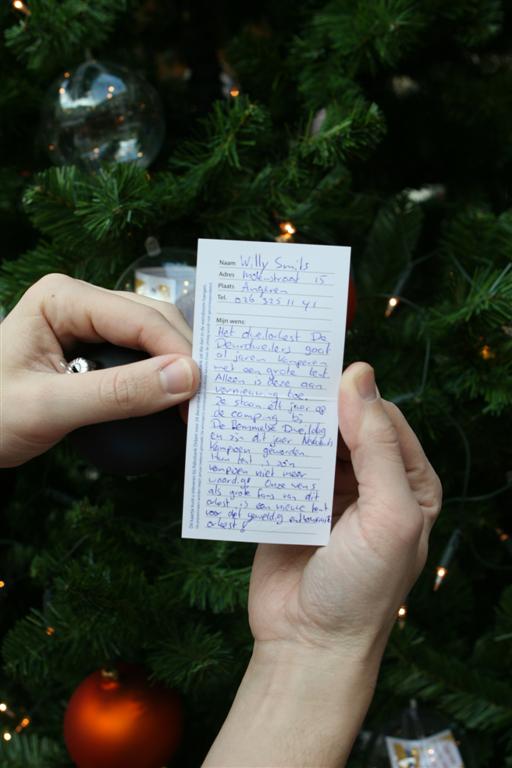 Naam: Willy Smits
Adres Molenstraat 15
Plaats Angeren
Tel. 026 325 11 41
Mijn wens:
Het dweilorkest De
Deurdweilers gaat
al jaren kamperen
met een grote tent
Alleen is deze aan
vernieuwing toe.
Ze staan elk jaar op
de camping bij
De Bemmelse Dweildag
en zijn dit jaar Nederlands
kampioen geworden
Hun tent is zo'n
kampioen niet meer
waardig. Onze wens
als grote fans van dit
orkest is een nieuwe tent
voor dit geweldig enthousiaste
orkest!